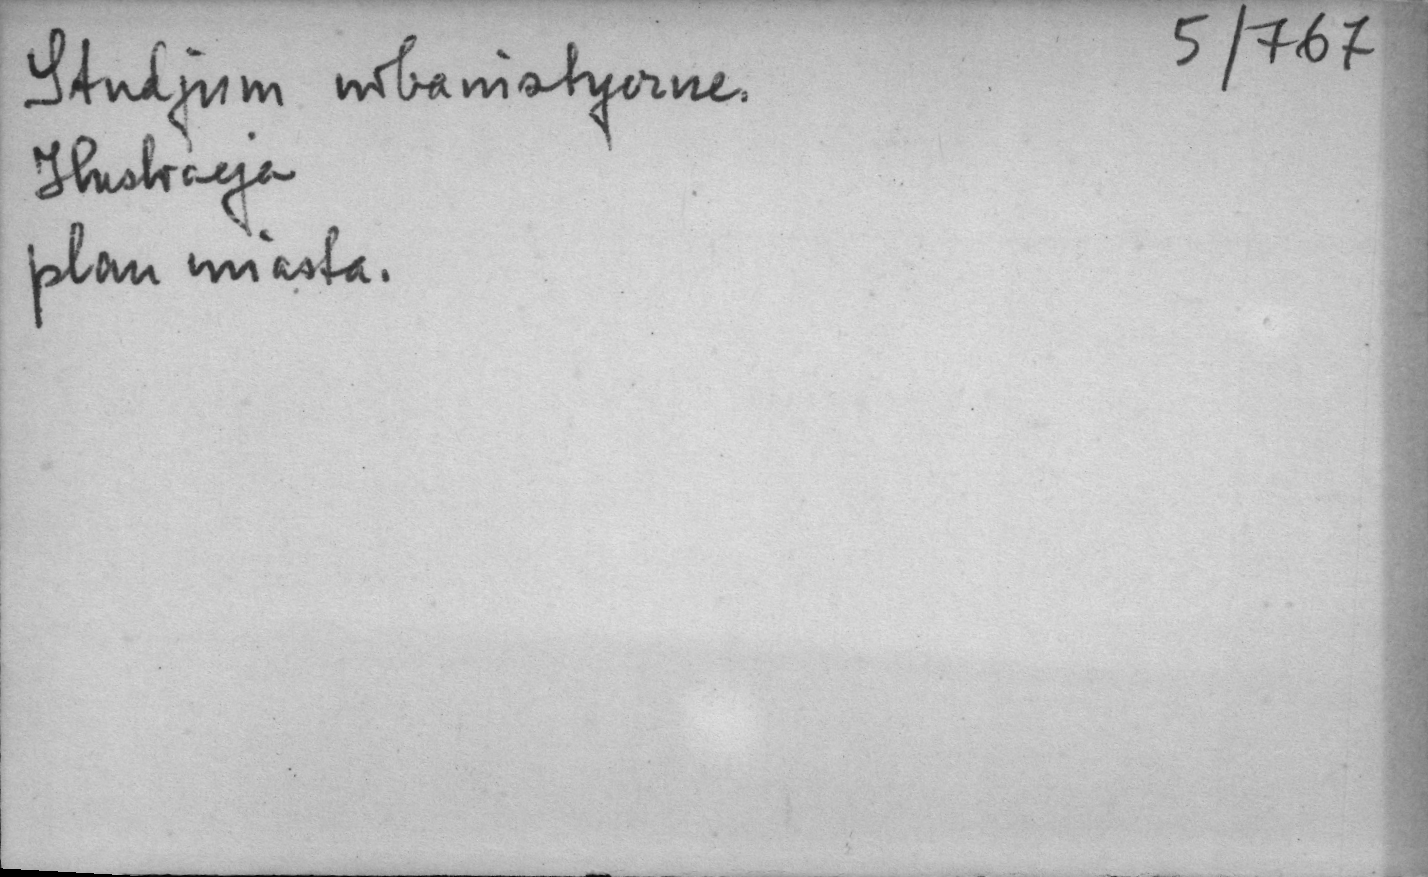 5/767
Studjum urbanistyczne.
Ilustracja
plan miasta.